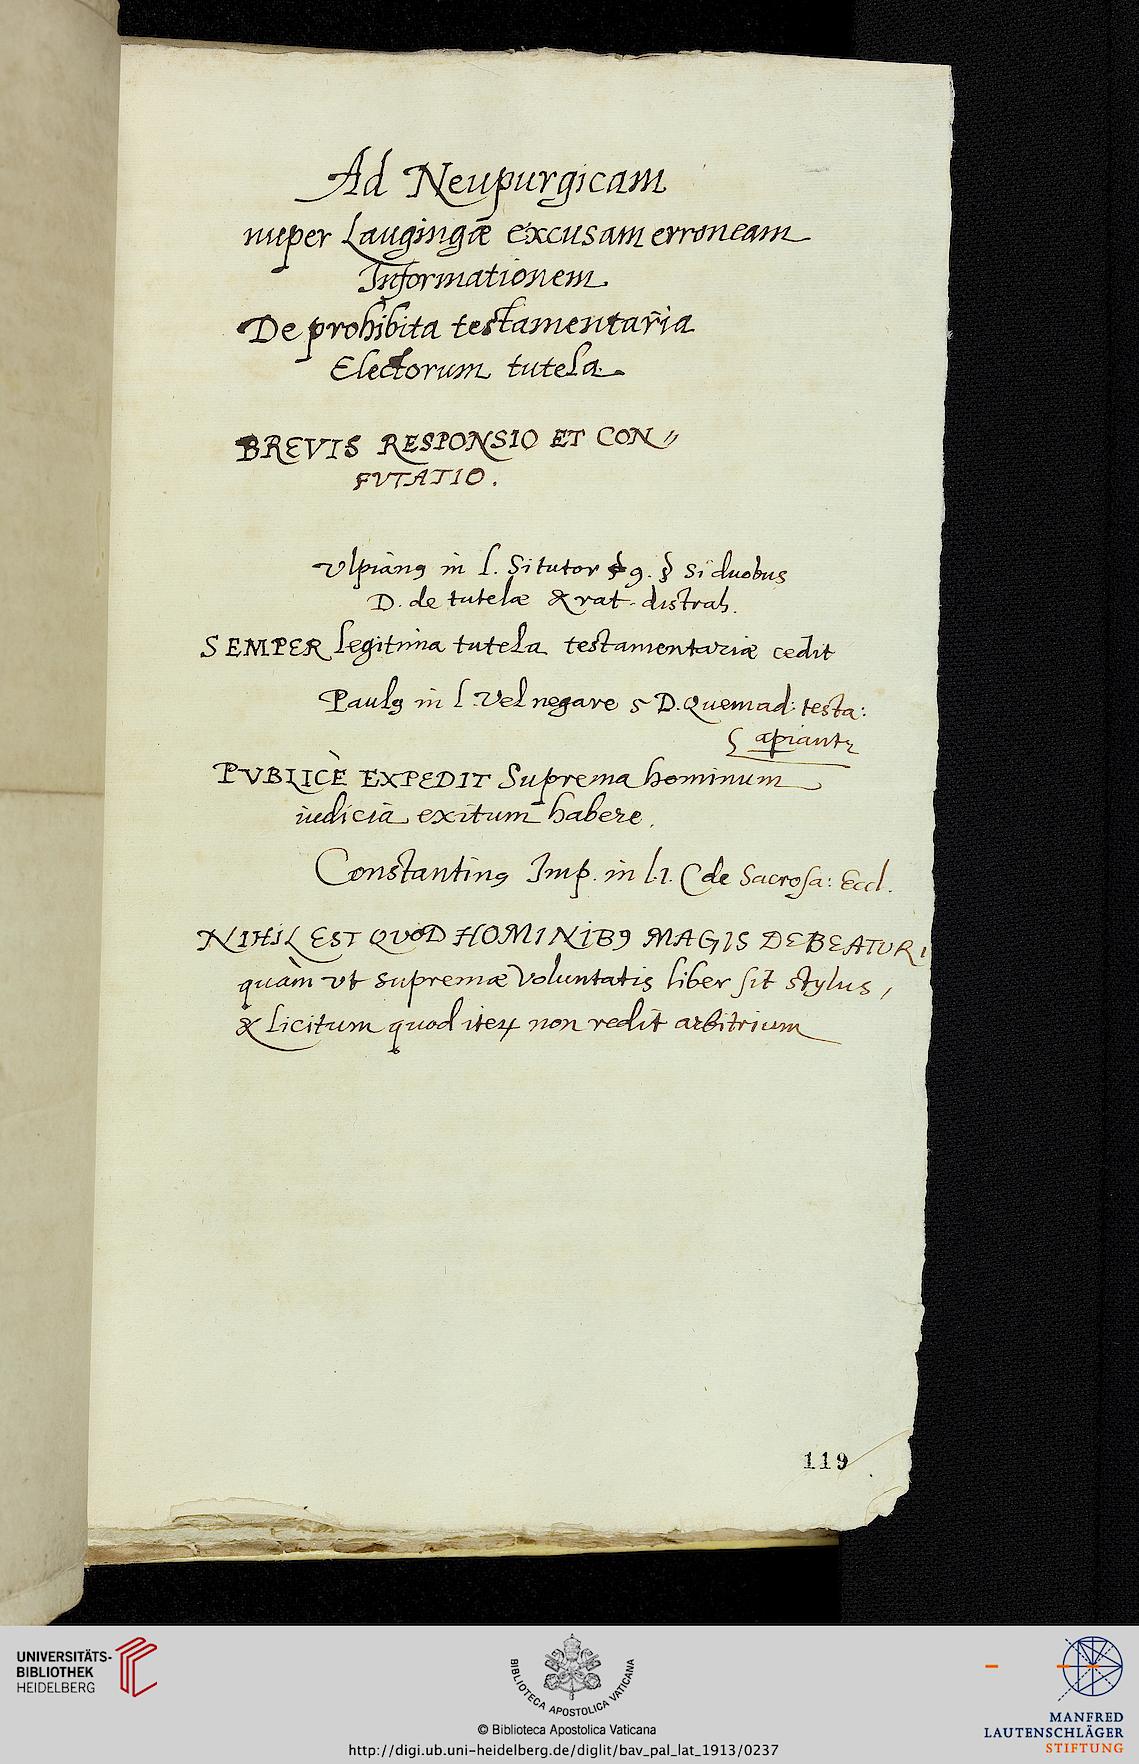 Ad Neupurgicam
nuper Laugingæ excusam erroneam
Informationem
De prohibita testamentaria
Electorum tutela.
BREVIS RESPONSIO ET CON〃
FVTATIO.
Vlpianꝰ in l. Si tutor 9. § Si duobus
D. de tutelæ & rat. distrah.
SEMPER legitima tutela testamentariæ cedit
Paulꝰ in l. Vel negare 5 D. Quemad: testa:
apiantr
PVBLICÈ EXPEDIT Suprema hominum
iudicia exitum habere.
Constantinꝰ Imp. in l.1. C de Sacrosa: Eccl.
NIHIL EST QVOD HOMINIBꝰ MAGIS DEBEATUR
quàm vt supremæ Voluntatis liber sit stylus,
& licitum quod iterꝝ non redit arbitrium
119
UNIVERSITÄTS-
BIBLIOTHEK
HEIDELBERG
BIBLIOTECA APOSTOLICA VATICANA
© Biblioteca Apostolica Vaticana
http://digi.ub.uni-heidelberg.de/diglit/bav_pal_lat_1913/0237
MANFRED
LAUTENSCHLÄGER
STIFTUNG